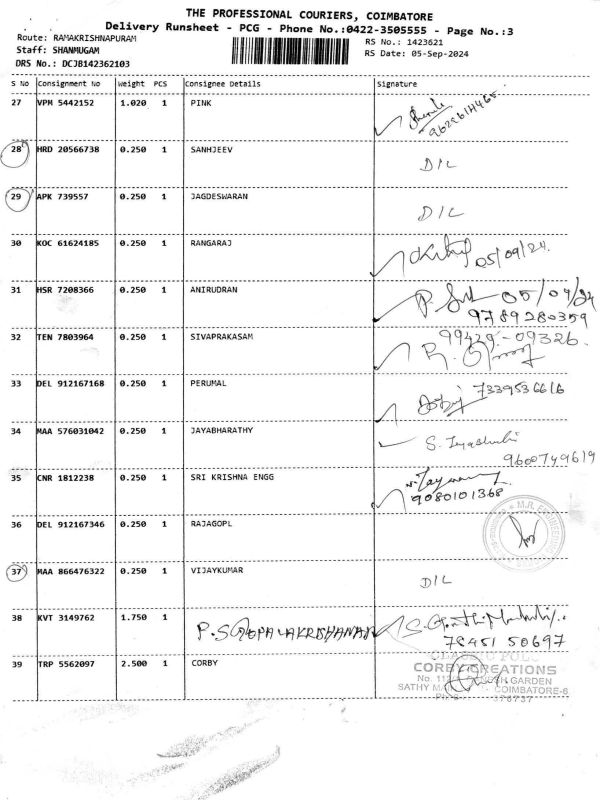 THE PROFESSIONAL COURIERS, COIMBATORE
Delivery Runsheet - PCG - Phone No.:0422-3505555 - Page No.:3
Route: RAMAKRISHNAPURAM
RS No.: 1423621
Staff: SHANMUGAM
RS Date: 05-Sep-2024
DRS No.: DCJB142362103
S No Consignment No Weight PCS Consignee Details Signature
27 VPM 5442152 1.020 1 PINK
28 HRD 20566738 0.250 1 SANHJEEV D/L
29 APK 739557 0.250 1 JAGDESWARAN D/L
30 KOC 61624185 0.250 1 RANGARAJ 05/09/24
31 HSR 7208366 0.250 1 ANIRUDRAN 05/09/24
9789280359
32 TEN 7803964 0.250 1 SIVAPRAKASAM 99429-09326
33 DEL 912167168 0.250 1 PERUMAL 7339536616
34 MAA 576031042 0.250 1 JAYABHARATHY
9600749619
35 CNR 1812238 0.250 1 SRI KRISHNA ENGG
9080101368
36 DEL 912167346 0.250 1 RAJAGOPL
37 MAA 866476322 0.250 1 VIJAYKUMAR D/L
38 KVT 3149762 1.750 1 P.S GOPALAKRISHANAN
78451 50697
39 TRP 5562097 2.500 1 CORBY
CORBY CREATIONS
GARDEN
SATHY COIMBATORE-6